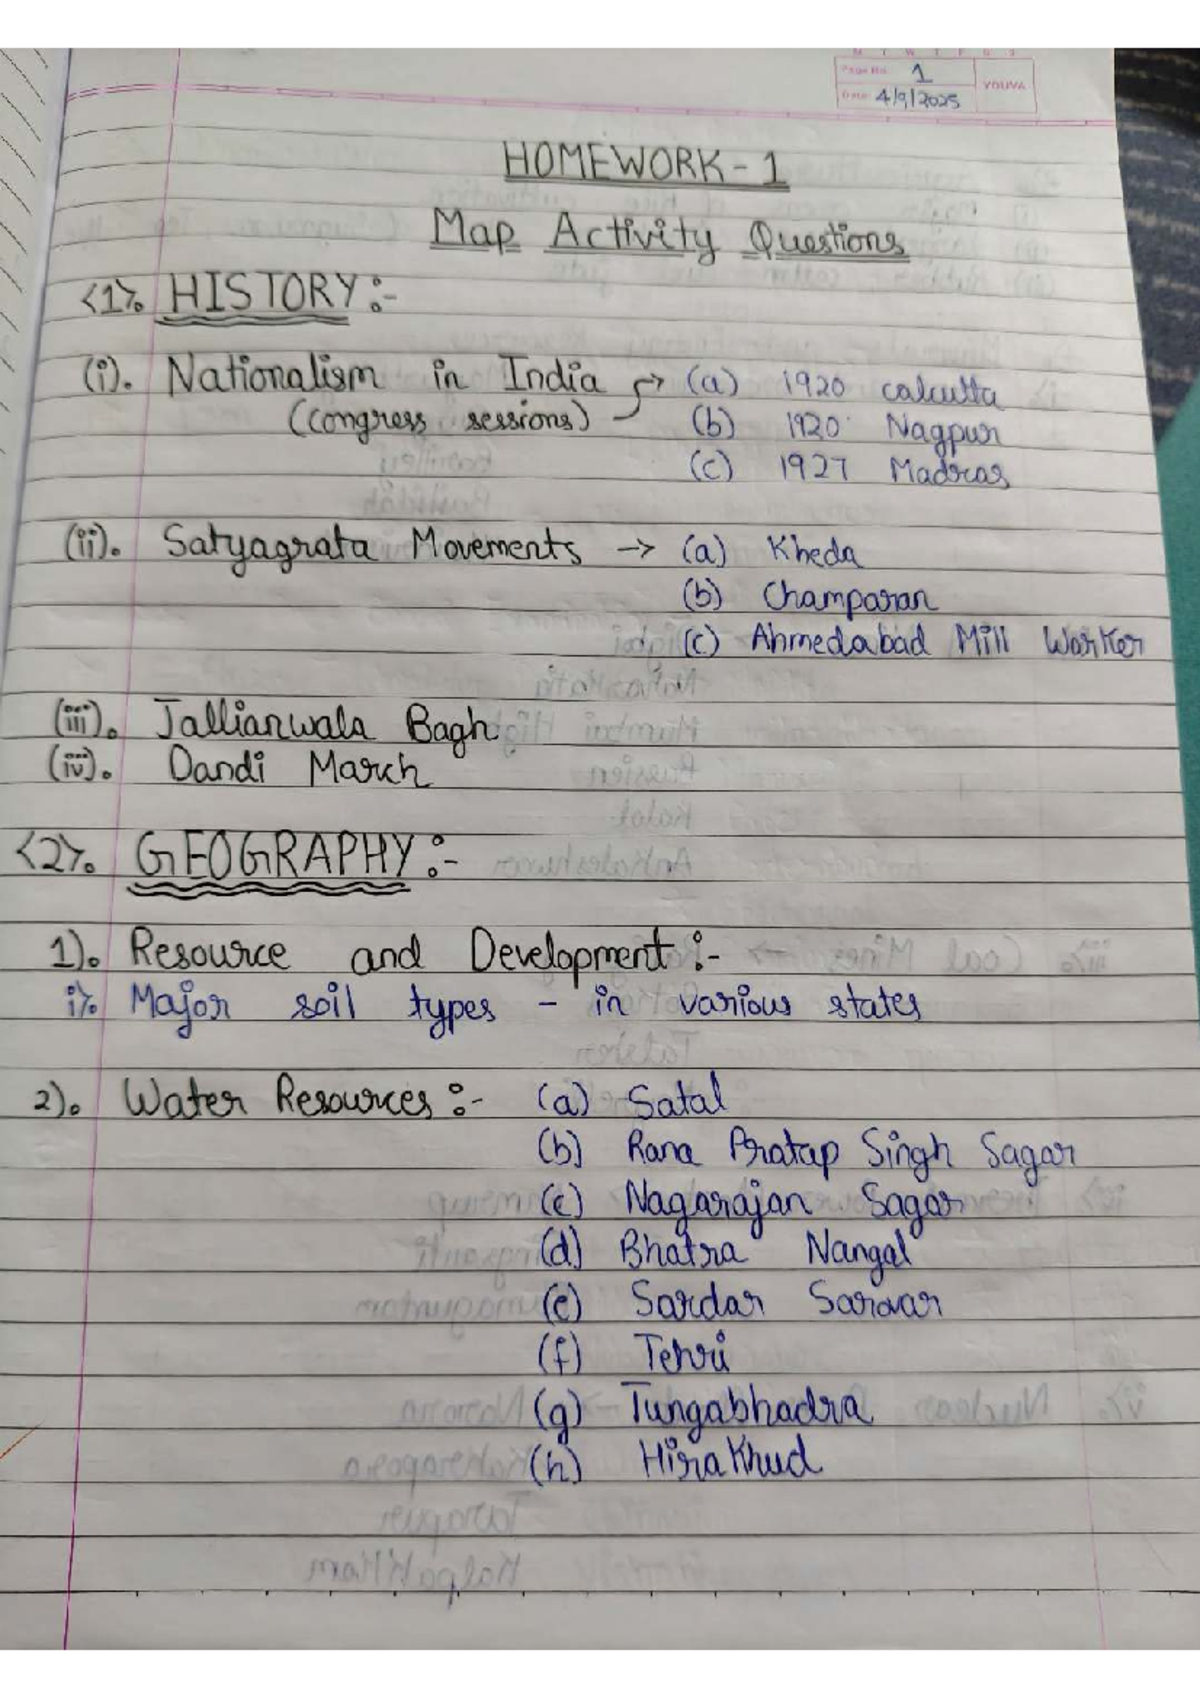 M T W T F S S
Page No. 1
Date 4/9/2025
YOUVA
HOMEWORK - 1
Map Activity Questions
<1>. HISTORY :-
(i). Nationalism in India → (a) 1920 calcutta
(congress sessions) (b) 1920 Nagpur
(c) 1927 Madras
(ii). Satyagrata Movements → (a) Kheda
(b) Champaran
(c) Ahmedabad Mill Worker
(iii). Jallianwala Bagh
(iv). Dandi March
<2>. GEOGRAPHY :-
1). Resource and Development :-
i% Major soil types - in various states
2). Water Resources :- (a) Satal
(b) Rana Pratap Singh Sagar
(c) Nagarajan Sagar
(d) Bhatra Nangal
(e) Sardar Sarovar
(f) Tehri
(g) Tungabhadra
(h) Hira Khud